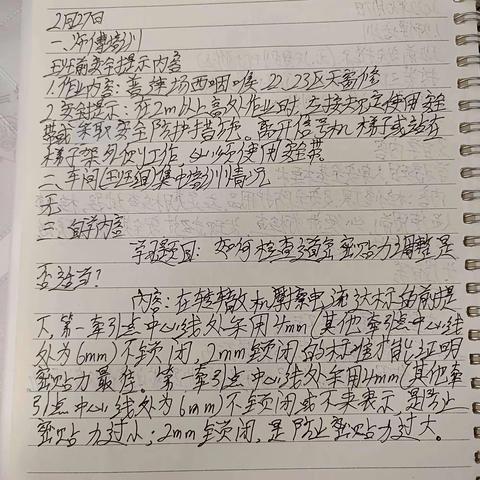 2月27日
一、师傅培训
班前安全提示内容
1.作业内容:姜墶场西咽喉:22.23区天窗修
2.安全提示:在2m以上高处作业时,必须使用安全
带或采取安全防护措施。离开信号机梯子或站在
梯子架外侧工作,必须使用安全带。
二、车间(班组)集中培训情况
无
三、自学内容
学习题目:如何检查道岔密贴力调整是
否適当?
内容:在转辙机摩擦电流达标的前提
下,第一牵引点中心线处采用4mm(其他牵引点中心线
处为6mm)不锁闭,2mm锁闭的标准才能证明
密贴力最佳。第一牵引点中心线处采用4mm(其他牵
引点中心线处为6mm)不锁闭或不夹表示,是防止
密贴力过小;2mm锁闭,是防止密贴力过大。